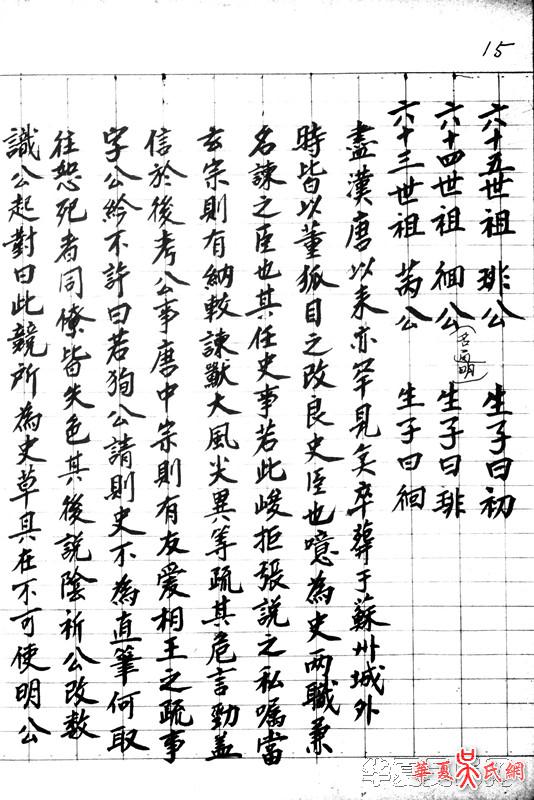 15
識公起對曰此競所為史草具在不可使明公
往恕死者同僚皆失色其後説陰祈公改数
字公紟不許曰若狥公請則史不為直筆何取
信於後考公事唐中宗則有友爱相王之疏事
玄宗則有納較諫獸大風災異等疏其危言勁盖
名諫之臣也其任史事若此峻拒張説之私嘱當
時皆以董狐目之改良史臣也噫為史两職兼
盡漢唐以来亦罕見矣卒葬于蘇州城外
六十三世祖 苪公 生子曰徊
六十四世祖 徊公 生子曰琲
六十五世祖 琲公 生子曰初
華夏吴氏網